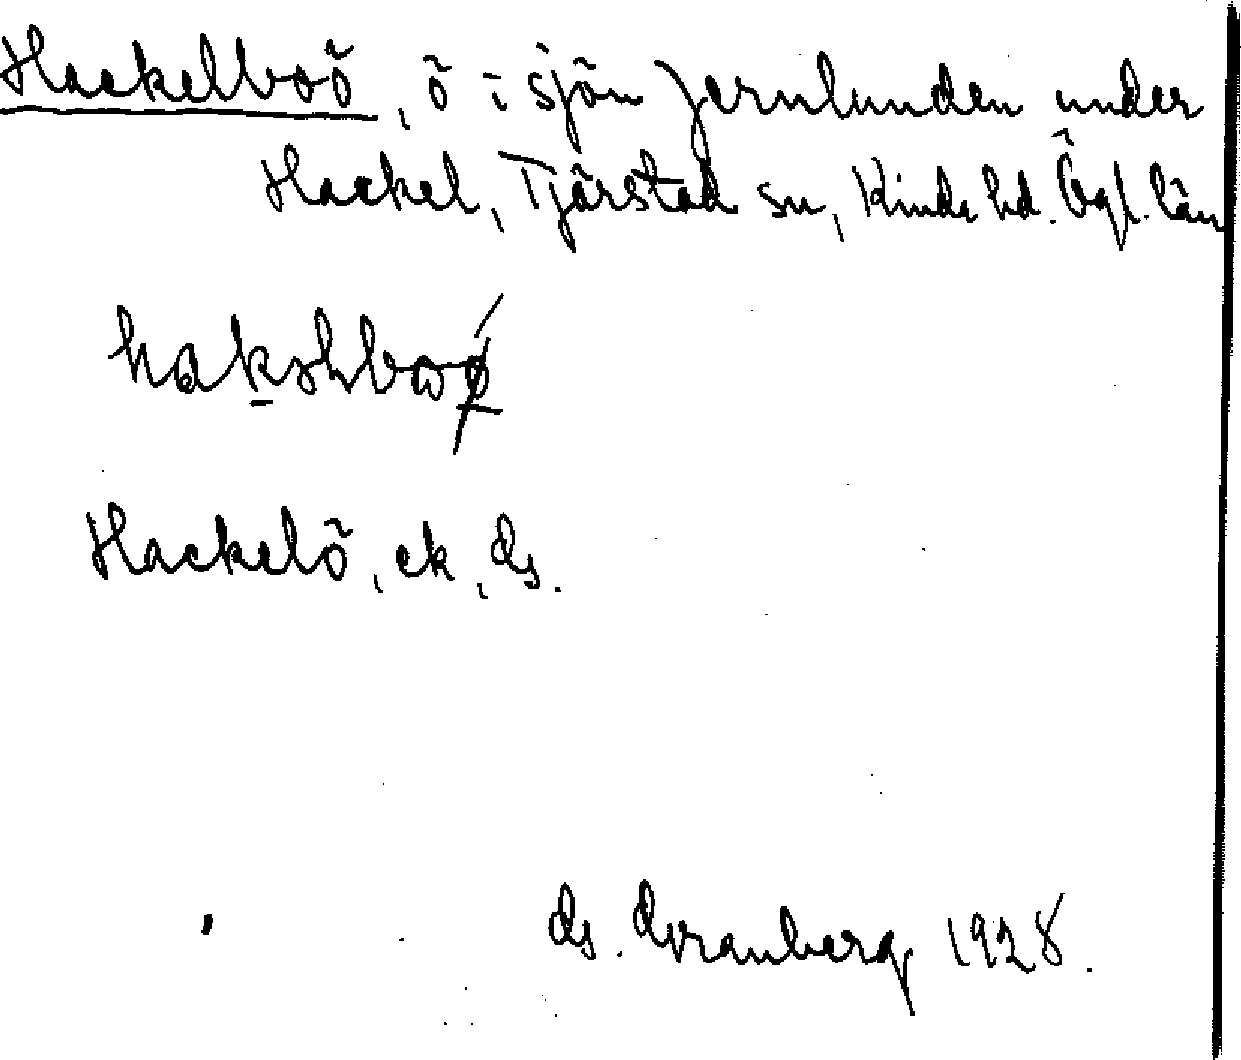 Hackelboö, ö i sjön Jernlunden under
Hackel, Tjärstad sn, Kinds hd. Ögl. län
Hackelö, ek, ds.
ds. Granberg 1928.